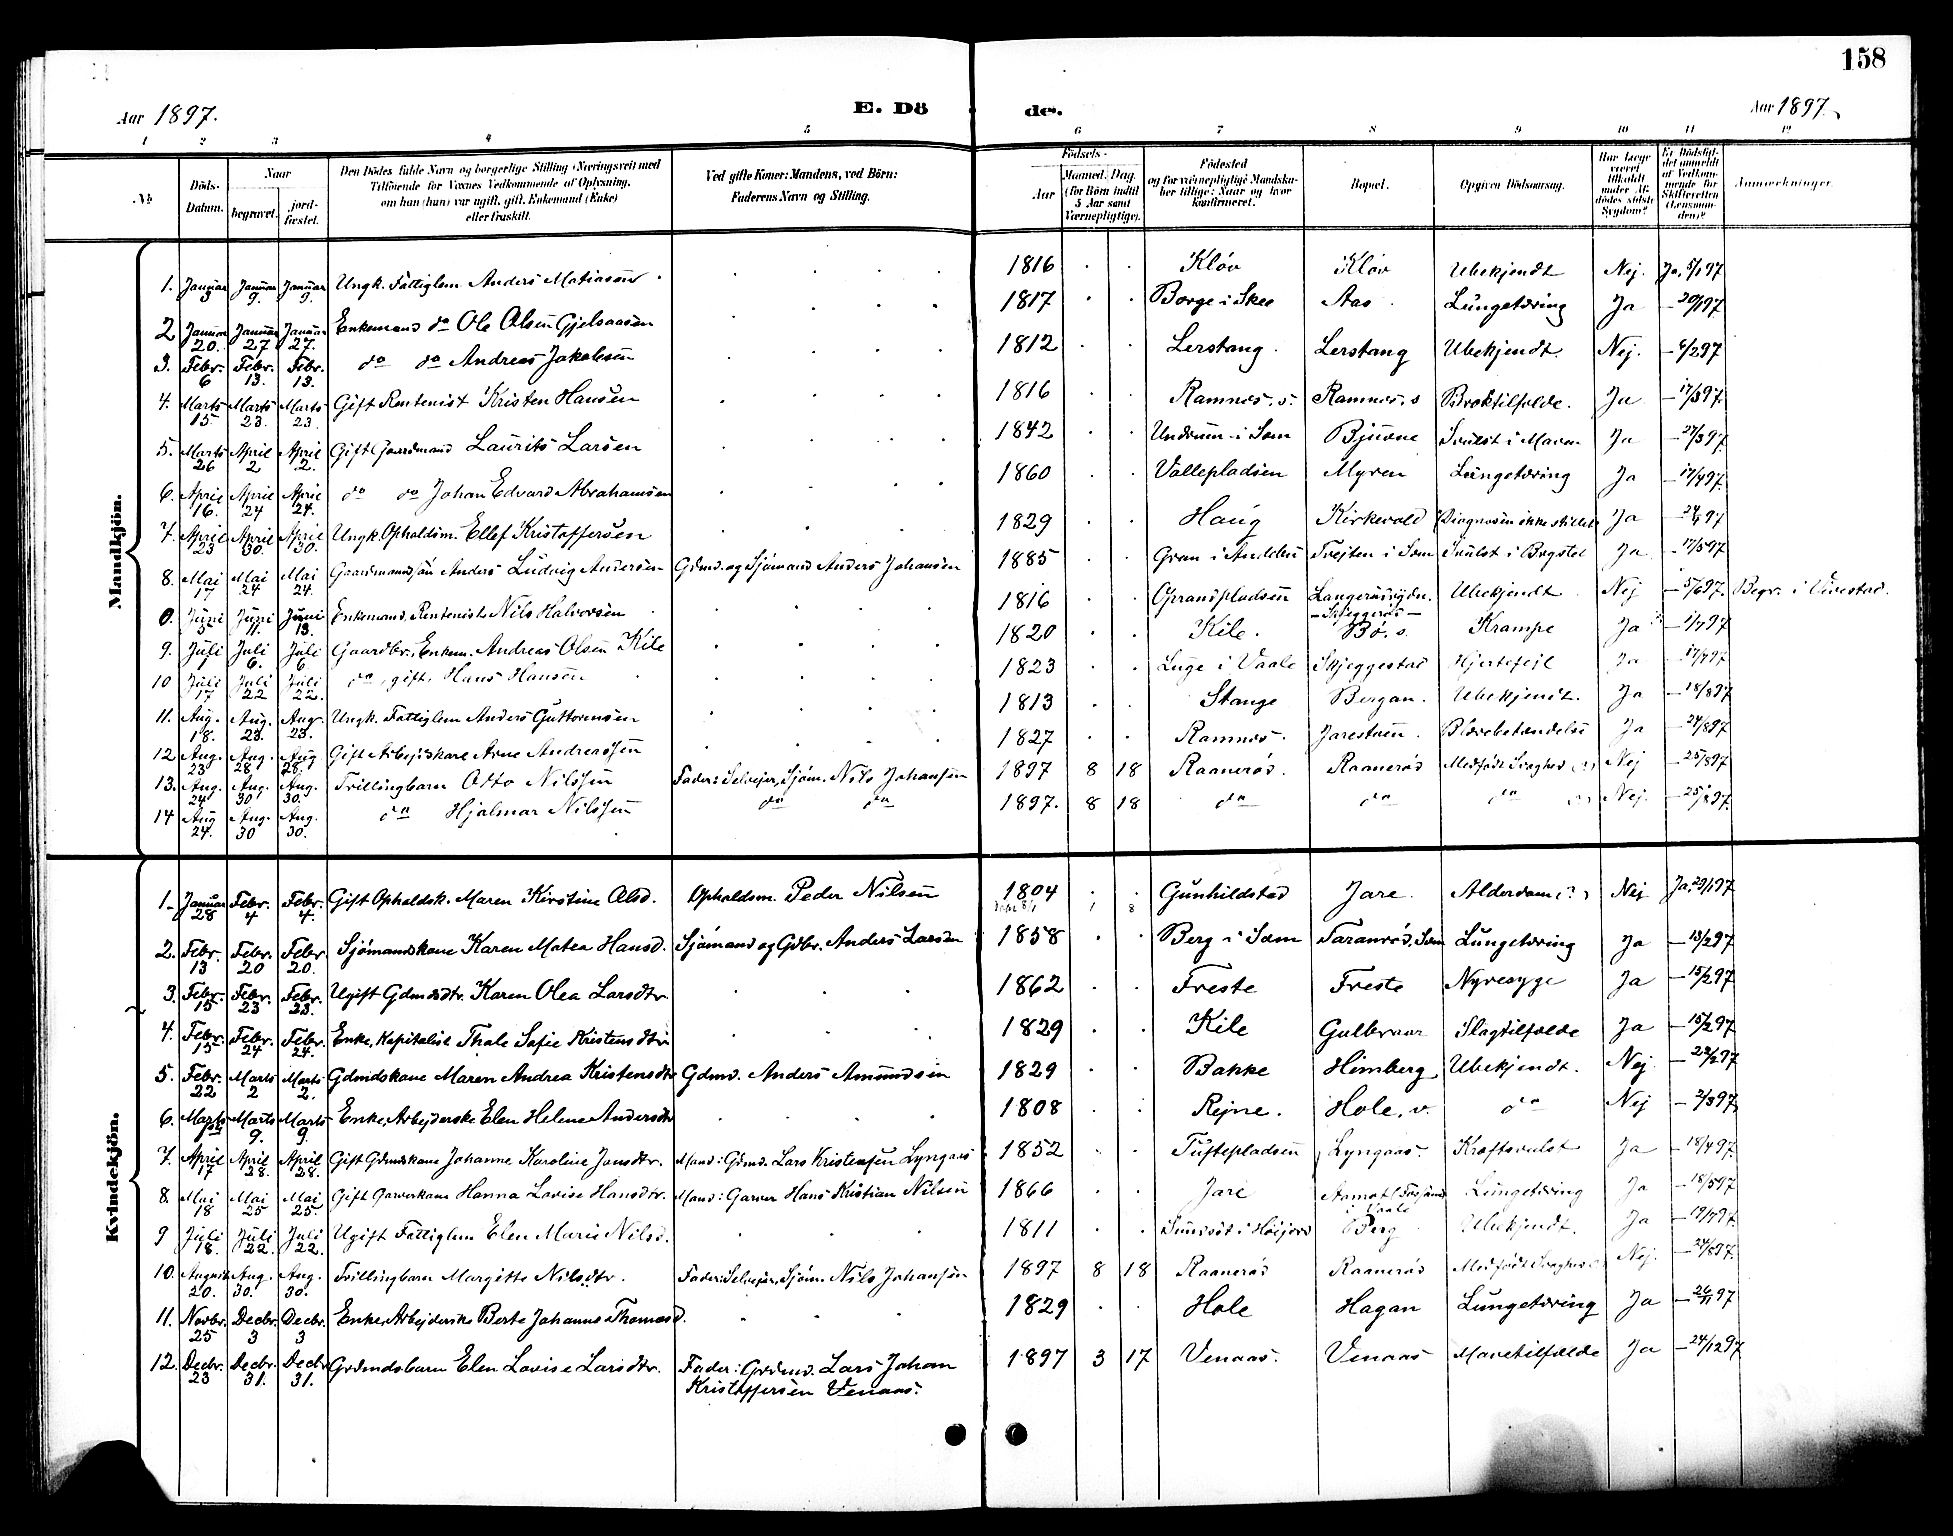 158
Aar 1897. E. Dö de. Aar 1897.
1 2 3 4 5 6 7 8 9 10 11 12
No. Döds-Datum. Naar begravet. jordfæstet. Den Dödes fulde Navn og borgerlige Stilling (Næringsvei) med Tilföiende for Voxnes Vedkommende af Oplysning, om han (hun) var ugift, gift, Enkemand (Enke) eller fraskilt. Ved gifte Koner: Mandens, ved Börn: Faderens Navn og Stilling. Födsels- Aar Maaned. Dag. (for Börn indtil 5 Aar samt Værnepligtige). Födested og for værnepligtige Mandskaber tillige: Naar og hvor konfirmeret. Bopæl. Opgiven Dödsaarsag. Har Læge været tilkaldt under Afdödes sidste Sygdom? Er Dödsfaldet anmeldt af Vedkommende for Skifteretten (Lensmanden)? Anmærkninger.
Mandkjön.
1. Januar 3 Januar 9. Januar 9. Ungk. Fattiglem Anders Matiasen 1816 Kløv Kløv Ubekjendt Nej. Ja, 5/1 97
2 Januar 20. Januar 27 Januar 27. Enkemand do Ole Olsen Gjelsaasen 1817 Borge i Skee Aas Lungetæring Ja — 20/1 97
3. Febr. 6 Febr. 13. Febr. 13. do do Andreas Jakobsen 1812 Lerstang. Lerstang Ubekjendt. Nej. — 6/2 97
4. Marts 15 Marts 23. Marts 23. Gift Rentenist Kristen Hansen 1816 Ramnes, s. Ramnes, s Broktilfælde. Ja — 17/3 97
5. Marts 26 April 2 April 2. Gift Gaardmand Laurits Larsen 1842 Undrum i Sem Bjuerne Svulst i Maven Ja — 27/3 97
6. April 16. April 24 April 24. do do Johan Edvard Abrahamsen 1860 Vallepladsen Myren Lungetæring Ja — 17/4 97
7. April 23 April 30. April 30. Ungk. Opholdsm. Ellef Kristoffersen 1829 Haug Kirkevold Diagnosen ikke stillet Ja
8. Mai 17 Mai 24 Mai 24. Gaardmandsøn Anders Ludvig Andersen Gdmd. og Sjömand Anders Johansen 1885 Gran i Andebu Tvejten i Sem Svulst i Brystet Ja — 17/5 97
0. Juni 5 Juni 11. Juni 13. Enkemand, Rentenist Nils Halvorsen 1816 Ubekjendt Nej 5/6 97. Begr. i Vivestad.
9. Juli 1 Juli 6. Juli 6 Gaardbr., Enkem. Andreas Olsen Kile 1820 Kile. Bø, s. Krampe Ja 1/7 97
10 Juli 17 Juli 22 Juli 22. do, gift, Hans Hansen 1823 Luge i Vaale Skjeggestad Hjertefejl Ja — 17/7 97
11. Aug. 18. Aug. 23. Aug. 23. Ungk. Fattiglem Anders Guttormsen 1813 Stange Bergan. Ubekjendt. Ja — 18/8 97
12 Aug. 23 Aug. 28 Aug 28. Gift Arbejdskare Arne Andreassen 1827 Ramnes. Jarestuen. Blærebetændelse Ja — 24/8 97
13. Aug. 24 Aug. 30 Aug. 30. Trillingbarn Otto Nilssen Fader: Selvejer, Sjöm. Nils Johansen 1897 8 18 Raanerøs. Raanerøs Medfødt Svaghed Nej — 25/8 97
14 Aug 24. Aug. 30 Aug. 30. do Hjalmar Nilssen do do 1897. 8 18 do do do Nej. — 25/8 97.
Kvindekjön.
1. Januar 28 Febr. 4 Febr. 4. Gift Opholdsk. Maren Kirstine Olsd. Opholdsm. Peder Nilsen 1804 Gunhildstad Jare. Alderdom (?) Nej Ja, 29/1 97
2. Febr. 13 Febr. 20 Febr. 20. Sjömandskone Karen Matea Hansd. Sjömand og Gdbr. Anders Larsen 1858 Berg i Sem Taranrød, Sem Lungetæring Ja — 13/2 97
3. Febr. 15 Febr. 23 Febr. 23. Ugift Gdmdsdtr. Karen Olea Larsdtr. 1862 Freste Freste Nyresyge Ja — 15/2 97
4. Febr. 15 Febr. 24 Febr. 24. Enke, Kapitalist Thale Sofie Kristensdtr 1829 Kile Gulbraar Slagtilfælde Ja — 15/2 97
5. Febr. 22 Marts 2 Marts 2. Gdmdskone Maren Andrea Kristensdtr Gdmd. Anders Amundsen 1829 Bakke Himberg Ubekjendt. Nej — 22/2 97
6. Marts Marts 9. Marts 9. Enke, Arbejderske Elen Helene Andersdtr 1808 Rejne. Hole, v. do Nej — 2/3 97
7. April 17 April 28. April 28. Gift Gdmdskone Johanne Karoline Jansdtr. Mand: Gdmd. Lars Kristensen Lyngaas 1852 Tuftepladsen Lyngaas. Kræftsvulst Ja — 18/4 97
8 Mai 18 Mai 25 Mai 25 Gift Garverkone Hanna Lovise Hansdtr. Mand: Garver Hans Kristian Nilsen 1866 Jare i Vaale Lungetæring Ja — 18/5 97
9 Juli 18. Juli 22. Juli 22. Ugift Fattiglem Elen Marie Nilsd. 1811 Berg Ubekjendt. Ja — 19/7 97
10. August 20. Aug. 30. Aug. 30. Trillingbarn Margitte Nilsdtr. Fader: Selvejer, Sjöm. Nils Johansen 1897 8 18 Raanerøs Raanerøs Medfødt Svaghed Nej. — 24/8 97
11. Novbr. 25 Decbr. 3 Decbr. 3 Enke, Arbejderske Berte Johanne Thomasd. 1829 Hole Hagan Lungetæring Ja — 26/11 97
12. Decbr. 23 Decbr. 31. Decbr 31. Grdmdsbarn Elen Lovise Larsdtr. Fader: Grdmd. Lars Johan Kristoffersen Venaas. 1897 3 17 Venaas. Venaas Mavetilfælde Ja — 24/12 97